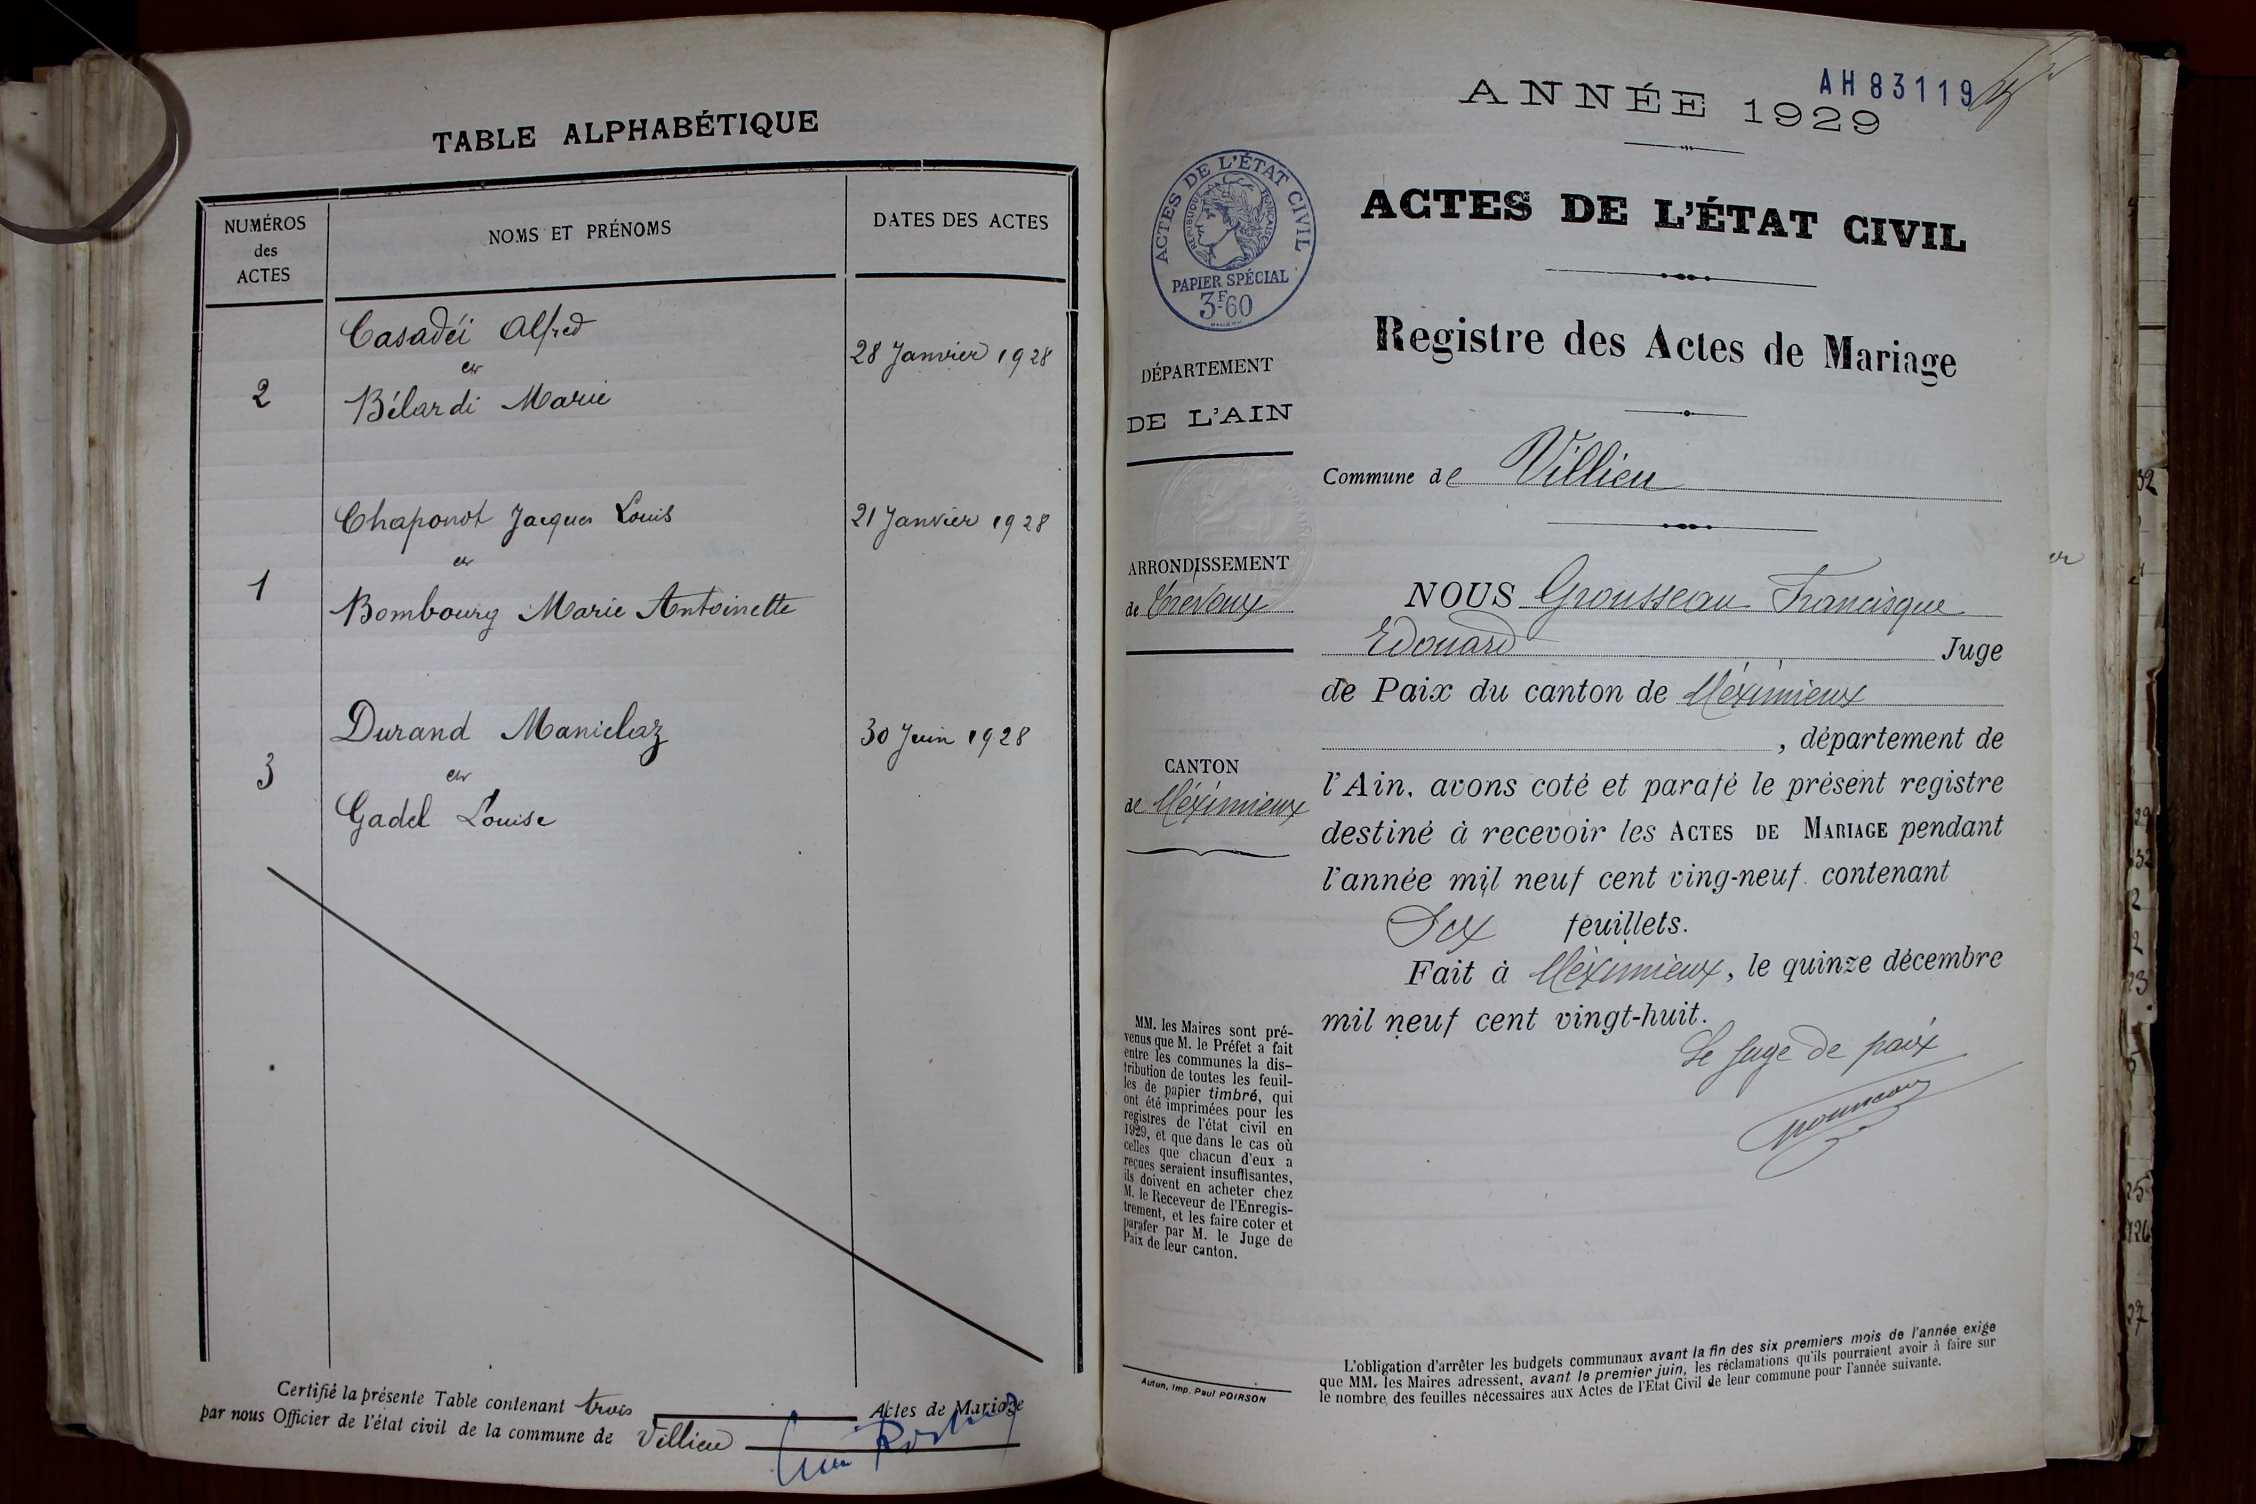 TABLE ALPHABÉTIQUE
NUMÉROS
des
ACTES
NOMS ET PRÉNOMS
DATES DES ACTES
Casadéi Alfred
28 Janvier 1928
et
2
Bélardi Marie
Chaponot Jacques Louis
21 Janvier 1928
et
1
Bombourg Marie Antoinette
Durand Maniclaz
30 Juin 1928
et
3
Gadel Louise
Certifié la présente Table contenant trois Actes de Mariage
par nous Officier de l'état civil de la commune de Villieu
AH 83119
ANNÉE 1929
ACTES DE L'ÉTAT CIVIL
RÉPUBLIQUE FRANÇAISE
PAPIER SPÉCIAL
3F60
ACTES DE L'ÉTAT CIVIL
Registre des Actes de Mariage
DÉPARTEMENT
DE L'AIN
Commune de Villieu
ARRONDISSEMENT
de Trévoux
CANTON
de Méximieux
NOUS Grousseau Francisque
Edouard Juge
de Paix du canton de Méximieux
, département de
l'Ain, avons coté et parafé le présent registre
destiné à recevoir les ACTES DE MARIAGE pendant
l'année mil neuf cent ving-neuf contenant
Six feuillets.
Fait à Méximieux, le quinze décembre
mil neuf cent vingt-huit.
Le Juge de paix
MM. les Maires sont pré-
venus que M. le Préfet a fait
entre les communes la dis-
tribution de toutes les feuil-
les de papier timbré, qui
ont été imprimées pour les
registres de l'état civil en
1929, et que dans le cas où
celles que chacun d'eux a
reçues seraient insuffisantes,
ils doivent en acheter chez
M. le Receveur de l'Enregis-
trement, et les faire coter et
parafer par M. le Juge de
Paix de leur canton.
Autun, Imp. Paul POIRSON
L'obligation d'arrêter les budgets communaux avant la fin des six premiers mois de l'année exige
que MM. les Maires adressent, avant le premier juin, les réclamations qu'ils pourraient avoir à faire sur
le nombre des feuilles nécessaires aux Actes de l'Etat Civil de leur commune pour l'année suivante.